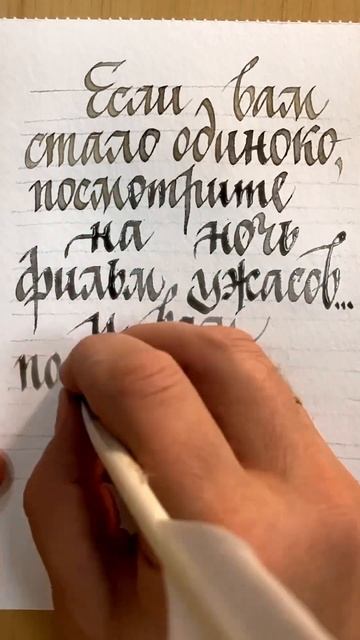 Если вам
стало одиноко,
посмотрите
на ночь
фильм ужасов...
и вам
по